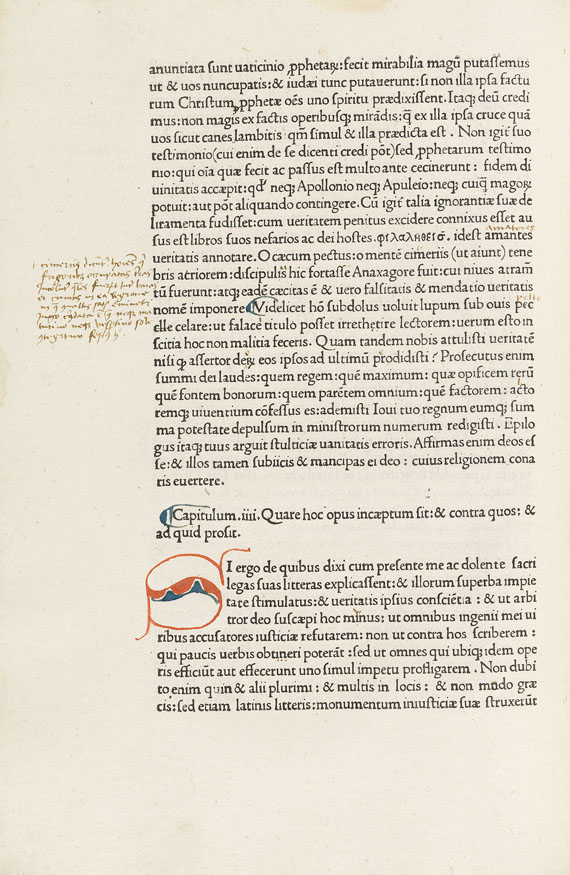 anuntiata sunt uaticinio ꝓphetaꝝ: fecit mirabilia magū putassemus
ut & uos nuncupatis: & iudæi tunc putauerunt: si non illa ipsa factu
rum Christum, ꝓphetæ oēs uno spiritu prædixissent. Itaqꝫ deū credi
mus: non magis ex factis operibusqꝫ mirādis: q̄ ex illa ipsa cruce quā
uos sicut canes lambitis qm̄ simul & illa prædicta est. Non igit̄ suo
testimonio (cui enim de se dicenti credi pōt) sed ꝓphetarum testimo
nio: qui oīa quæ fecit ac passus est multo ante cecinerunt: fidem di
uinitatis accæpit: qd̓ neqꝫ Apollonio neqꝫ Apuleio: neqꝫ cuiq̄ magoꝝ
potuit: aut pōt aliquando contingere. Cū igit̄ talia ignorantiæ suæ de
liramenta fudisset: cum ueritatem penitus excidere connixus esset au
amatores
sus est libros suos nefarios ac dei hostes. φιλαληθεισ. idest amantes
ueritatis annotare. O cæcum pectus: o mentē cimeriis (ut aiunt) tene
bris atriorem: discipulus hic fortasse Anaxagoræ fuit: cui niues atram̄
tū fuerunt: atqꝫ eadē cæcitas ē & uero falsitatis & mendatio ueritatis
nomē imponere Videlicet hō subdolus uoluit lupum sub ouis pec
elle celare: ut falace titulo posset irrethetire lectorem: uerum esto in
scitia hoc non malitia feceris. Quam tandem nobis attulisti ueritatē
nisi q̄ assertor deꝝ eos ipsos ad ultimū prodidisti? Prosecutus enim
summi dei laudes: quem regem: quē maximum: quæ opificem reꝝū
quē fontem bonorum: quem parētem omnium: quē factorem: acto
remqꝫ uiuentium cōfessus es: ademisti Ioui tuo regnum eumqꝫ sum
ma potestate depulsum in ministrorum numerum redigisti. Epilo
gus itaqꝫ tuus arguit stulticiæ uanitatis erroris. Affirmas enim deos es
se: & illos tamen subiicis & mancipas ei deo: cuius religionem cona
ris euertere.
Capitulum .iiii. Quare hoc opus incæptum sit: & contra quos: &
ad quid prosit.
SI ergo de quibus dixi cum presente me ac dolente sacri
legas suas litteras explicassent: & illorum superba impie
tate stimulatus: & ueritatis ipsius consciētia: & ut arbi
tror deo suscæpi hoc minus: ut omnibus ingenii mei ui
ribus accusatores iusticiæ refutarem: non ut contra hos scriberem:
qui paucis uerbis obtineri poterāt: sed ut omnes qui ubiqꝫ idem ope
ris efficiūt aut effecerunt uno simul impetu profligarem. Non dubi
to enim quin & alii plurimi: & multis in locis: & non modo græ
cis: sed etiam latinis litteris: monumentum iniusticiæ suæ struxerūt